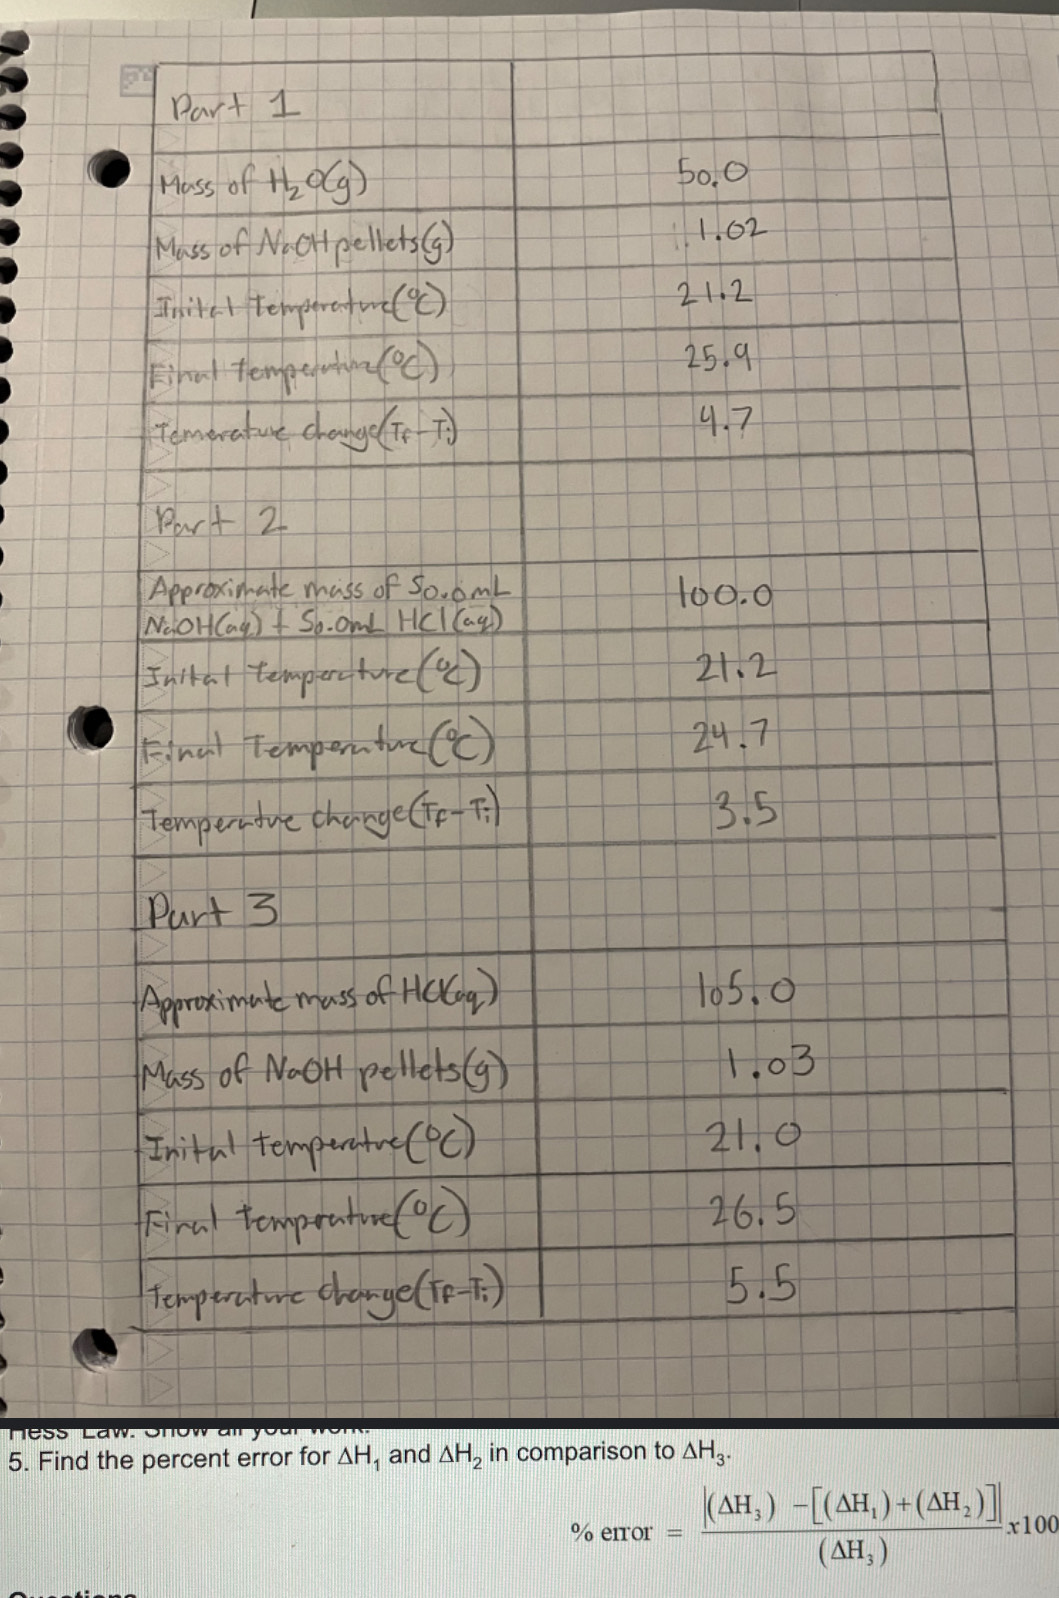 Part 1
Mass of H₂O(g) 50.0
Mass of NaOH pellets(g) 1.02
Inital temperature(°C) 21.2
Final temperature(°C) 25.9
Temerature change(Tf-Ti) 4.7
Part 2
Approximate mass of 50.0mL
NaOH(aq) + 50.0mL HCl(aq) 100.0
Inital temperature(°C) 21.2
Final Temperature(°C) 24.7
Temperature change(Tf-Ti) 3.5
Part 3
Approximate mass of HCl(aq) 105.0
Mass of NaOH pellets(g) 1.03
Inital temperature(°C) 21.0
Final temprature(°C) 26.5
Temperature change(Tf-Ti) 5.5
Hess' Law. Show all your work.
5. Find the percent error for ΔH₁ and ΔH₂ in comparison to ΔH₃.
% error = |(ΔH₃) -[(ΔH₁)+(ΔH₂)]| / (ΔH₃) x100
Questions